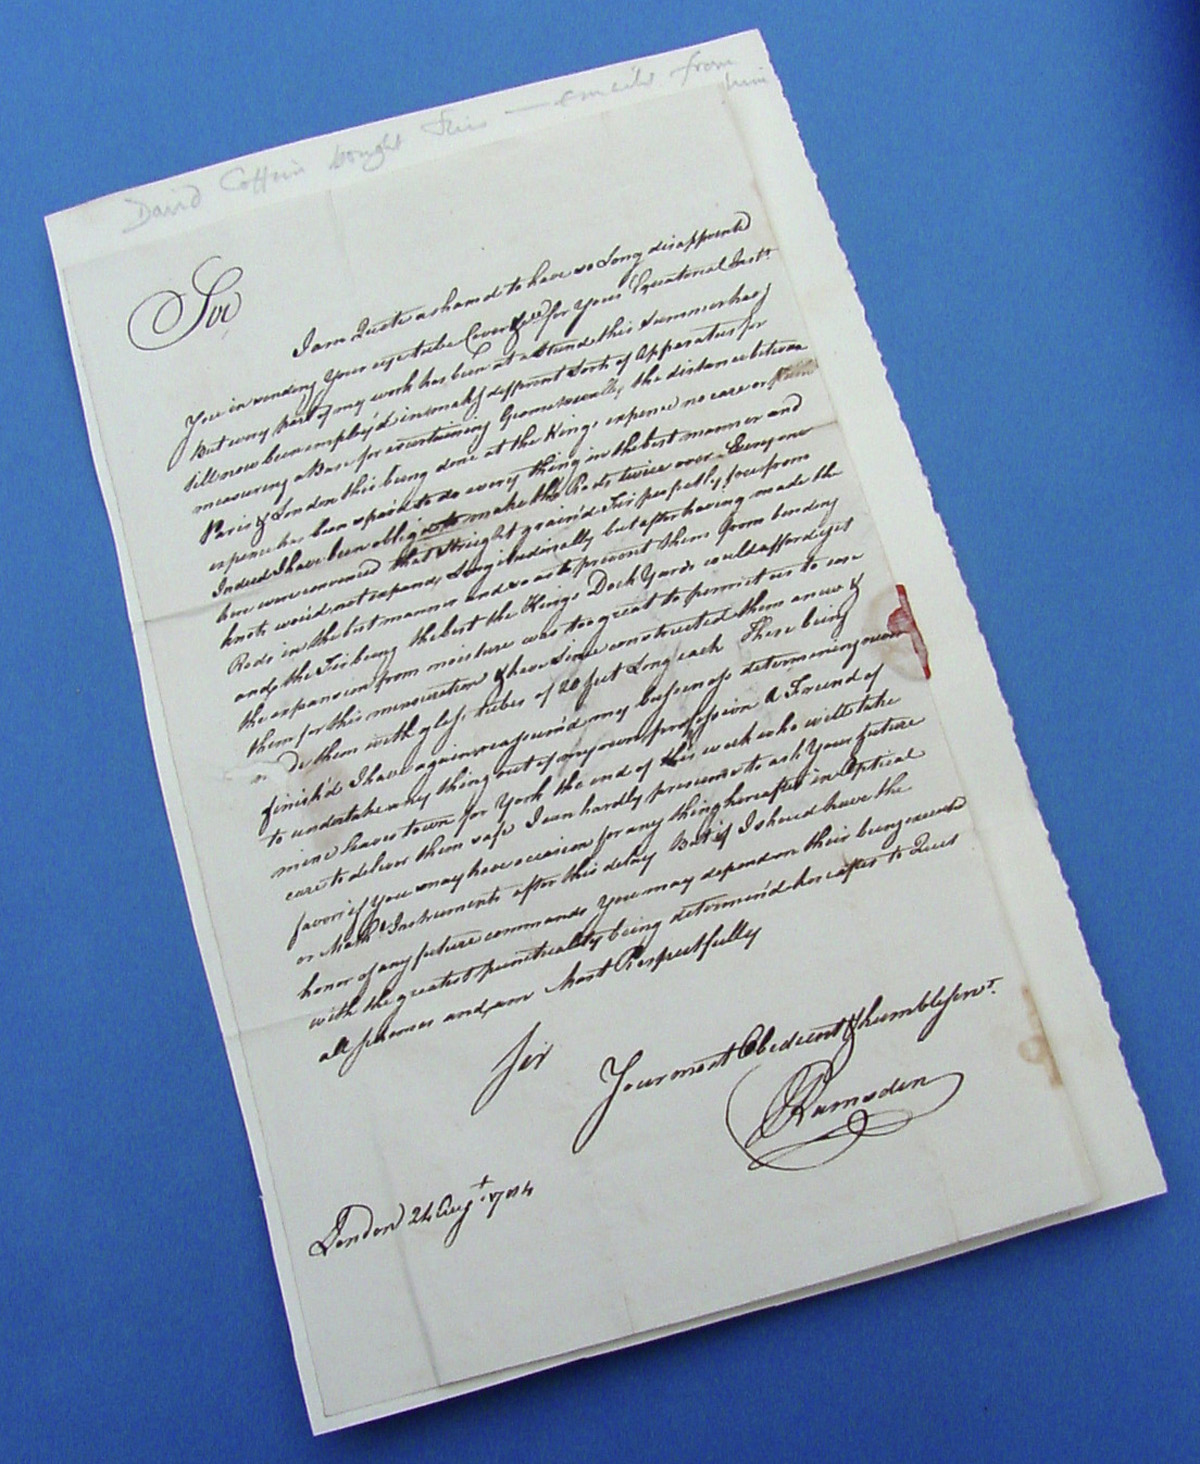 David Coffein bought this — from
him
Sir
I am Quite ashamed to have so Long disappointed
You in sending Your eye tube Cover &c for Your Equatorial Instt
But every part of my work has been at a stand this summer haveg
till now been employ'd in makg different Sorts of Apparatus for
measuring a Base for ascertaining Geometrically the distance between
Paris & London this being done at the Kings expence no care or
expence has been spaird to do every thing in the best manner and
Indeed I have been obliged to make the Rods twice over Every one
here were convinced that straight grain'd Fir perfectly free from
knots would not expand Longitudinally but after having made the
Rods in the best manner and so as to prevent them from bending
and the Fir being the best the Kings Dock Yards could afford yet
the expansion from moisture was too great to permit us to use
them for this mensuration & have since constructed them anew &
made them with glass tubes of 20 feet Long each These being
finish'd I have again reassum'd my bussiness determining never
to undertake any thing out of my own profession A Freind of
mine Leaves town for York the end of this week who will take
care to deliver them safe I can hardly presume to ask Your future
favors if You may have occasion for any thing hereafter in Optical
or Math Instruments after this delay But if I should have the
honor of any future commands You may depend on their being executed
with the greatest punctuality being determin'd hereafter to Quit
all schemes and am Most Respectfully
Sir
Your most Obedient & humble Servt
JRamsden
London 24 Augt 1784